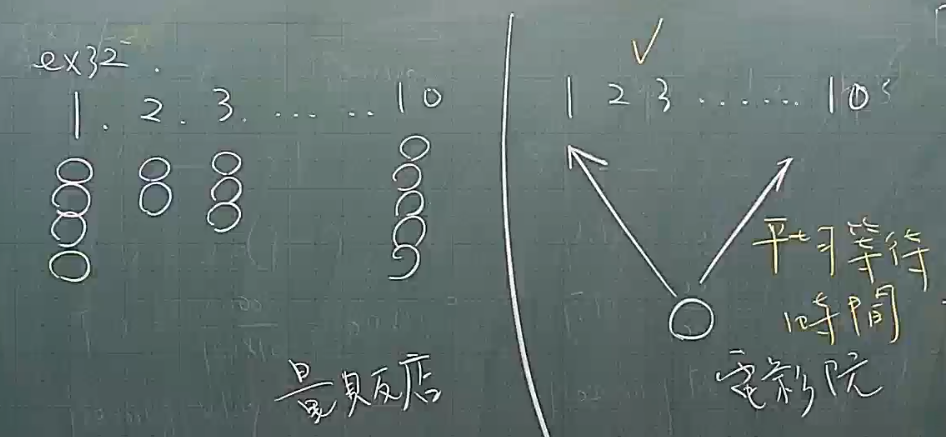 ex32.
1. 2. 3. ..... 10
量販店
1 2 3 ...... 10
平均等待
時間
電影院